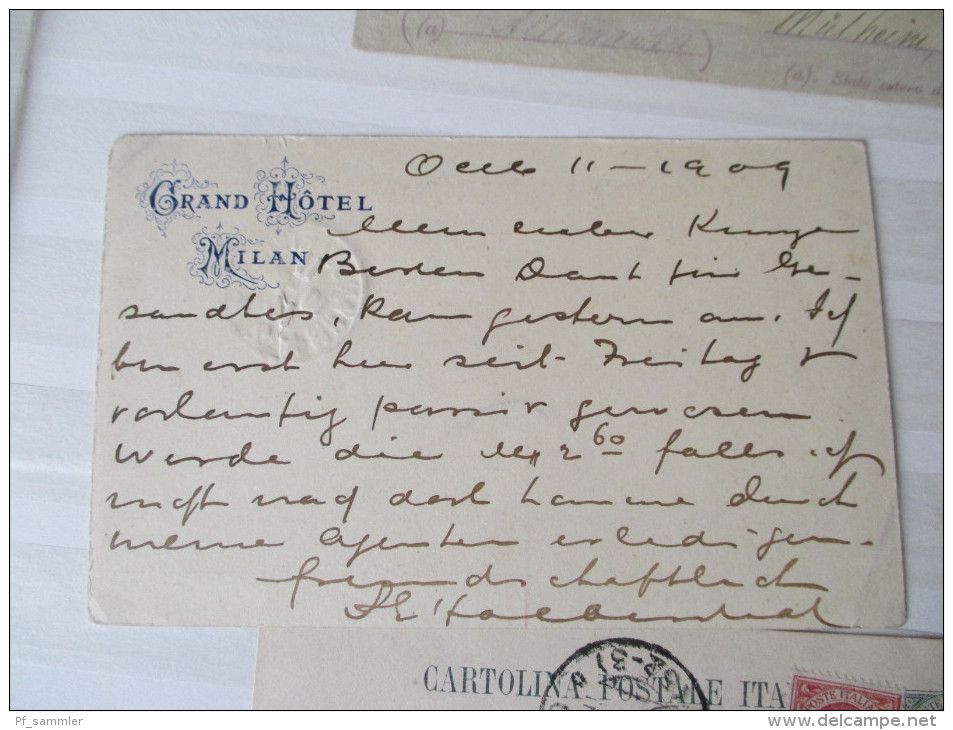 (a)
Mülheim,
(a). Stato estero d
Oct 11 - 1909
GRAND HÔTEL
MILAN
Mein lieber
Besten Dank für Ge-
sandtes, kam gestern an. Ich
bin erst hier seit Freitag &
vorläufig gewesen
Werde die M 2 60 falls ich
nicht nach dort komme durch
meine Agenten erledigen.
freundschaftlich
CARTOLINA POSTALE ITA
POSTE ITALIA
Pf_sammler
http://www.delcampe.net